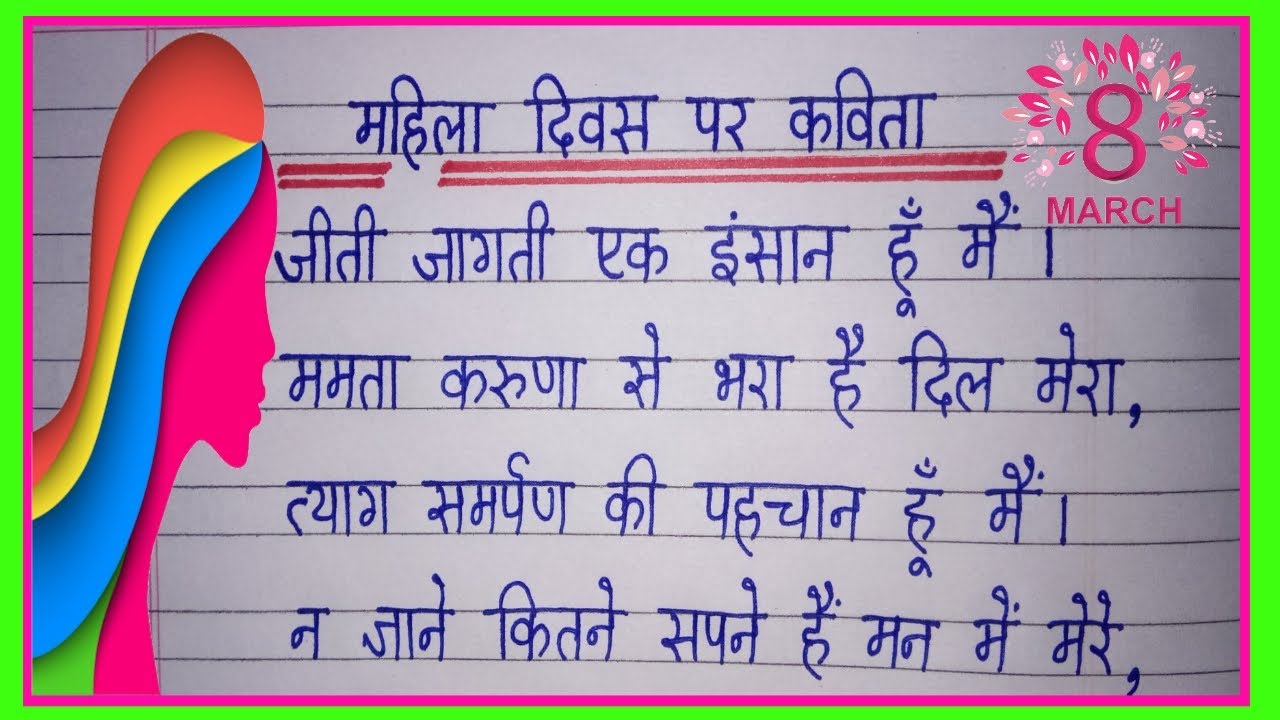 महिला दिवस पर कविता
8
MARCH
जीती जागती एक इंसान हूँ मैं।
ममता करुणा से भरा है दिल मेरा,
त्याग समर्पण की पहचान हूँ मैं।
न जाने कितने सपने हैं मन में मेरे,